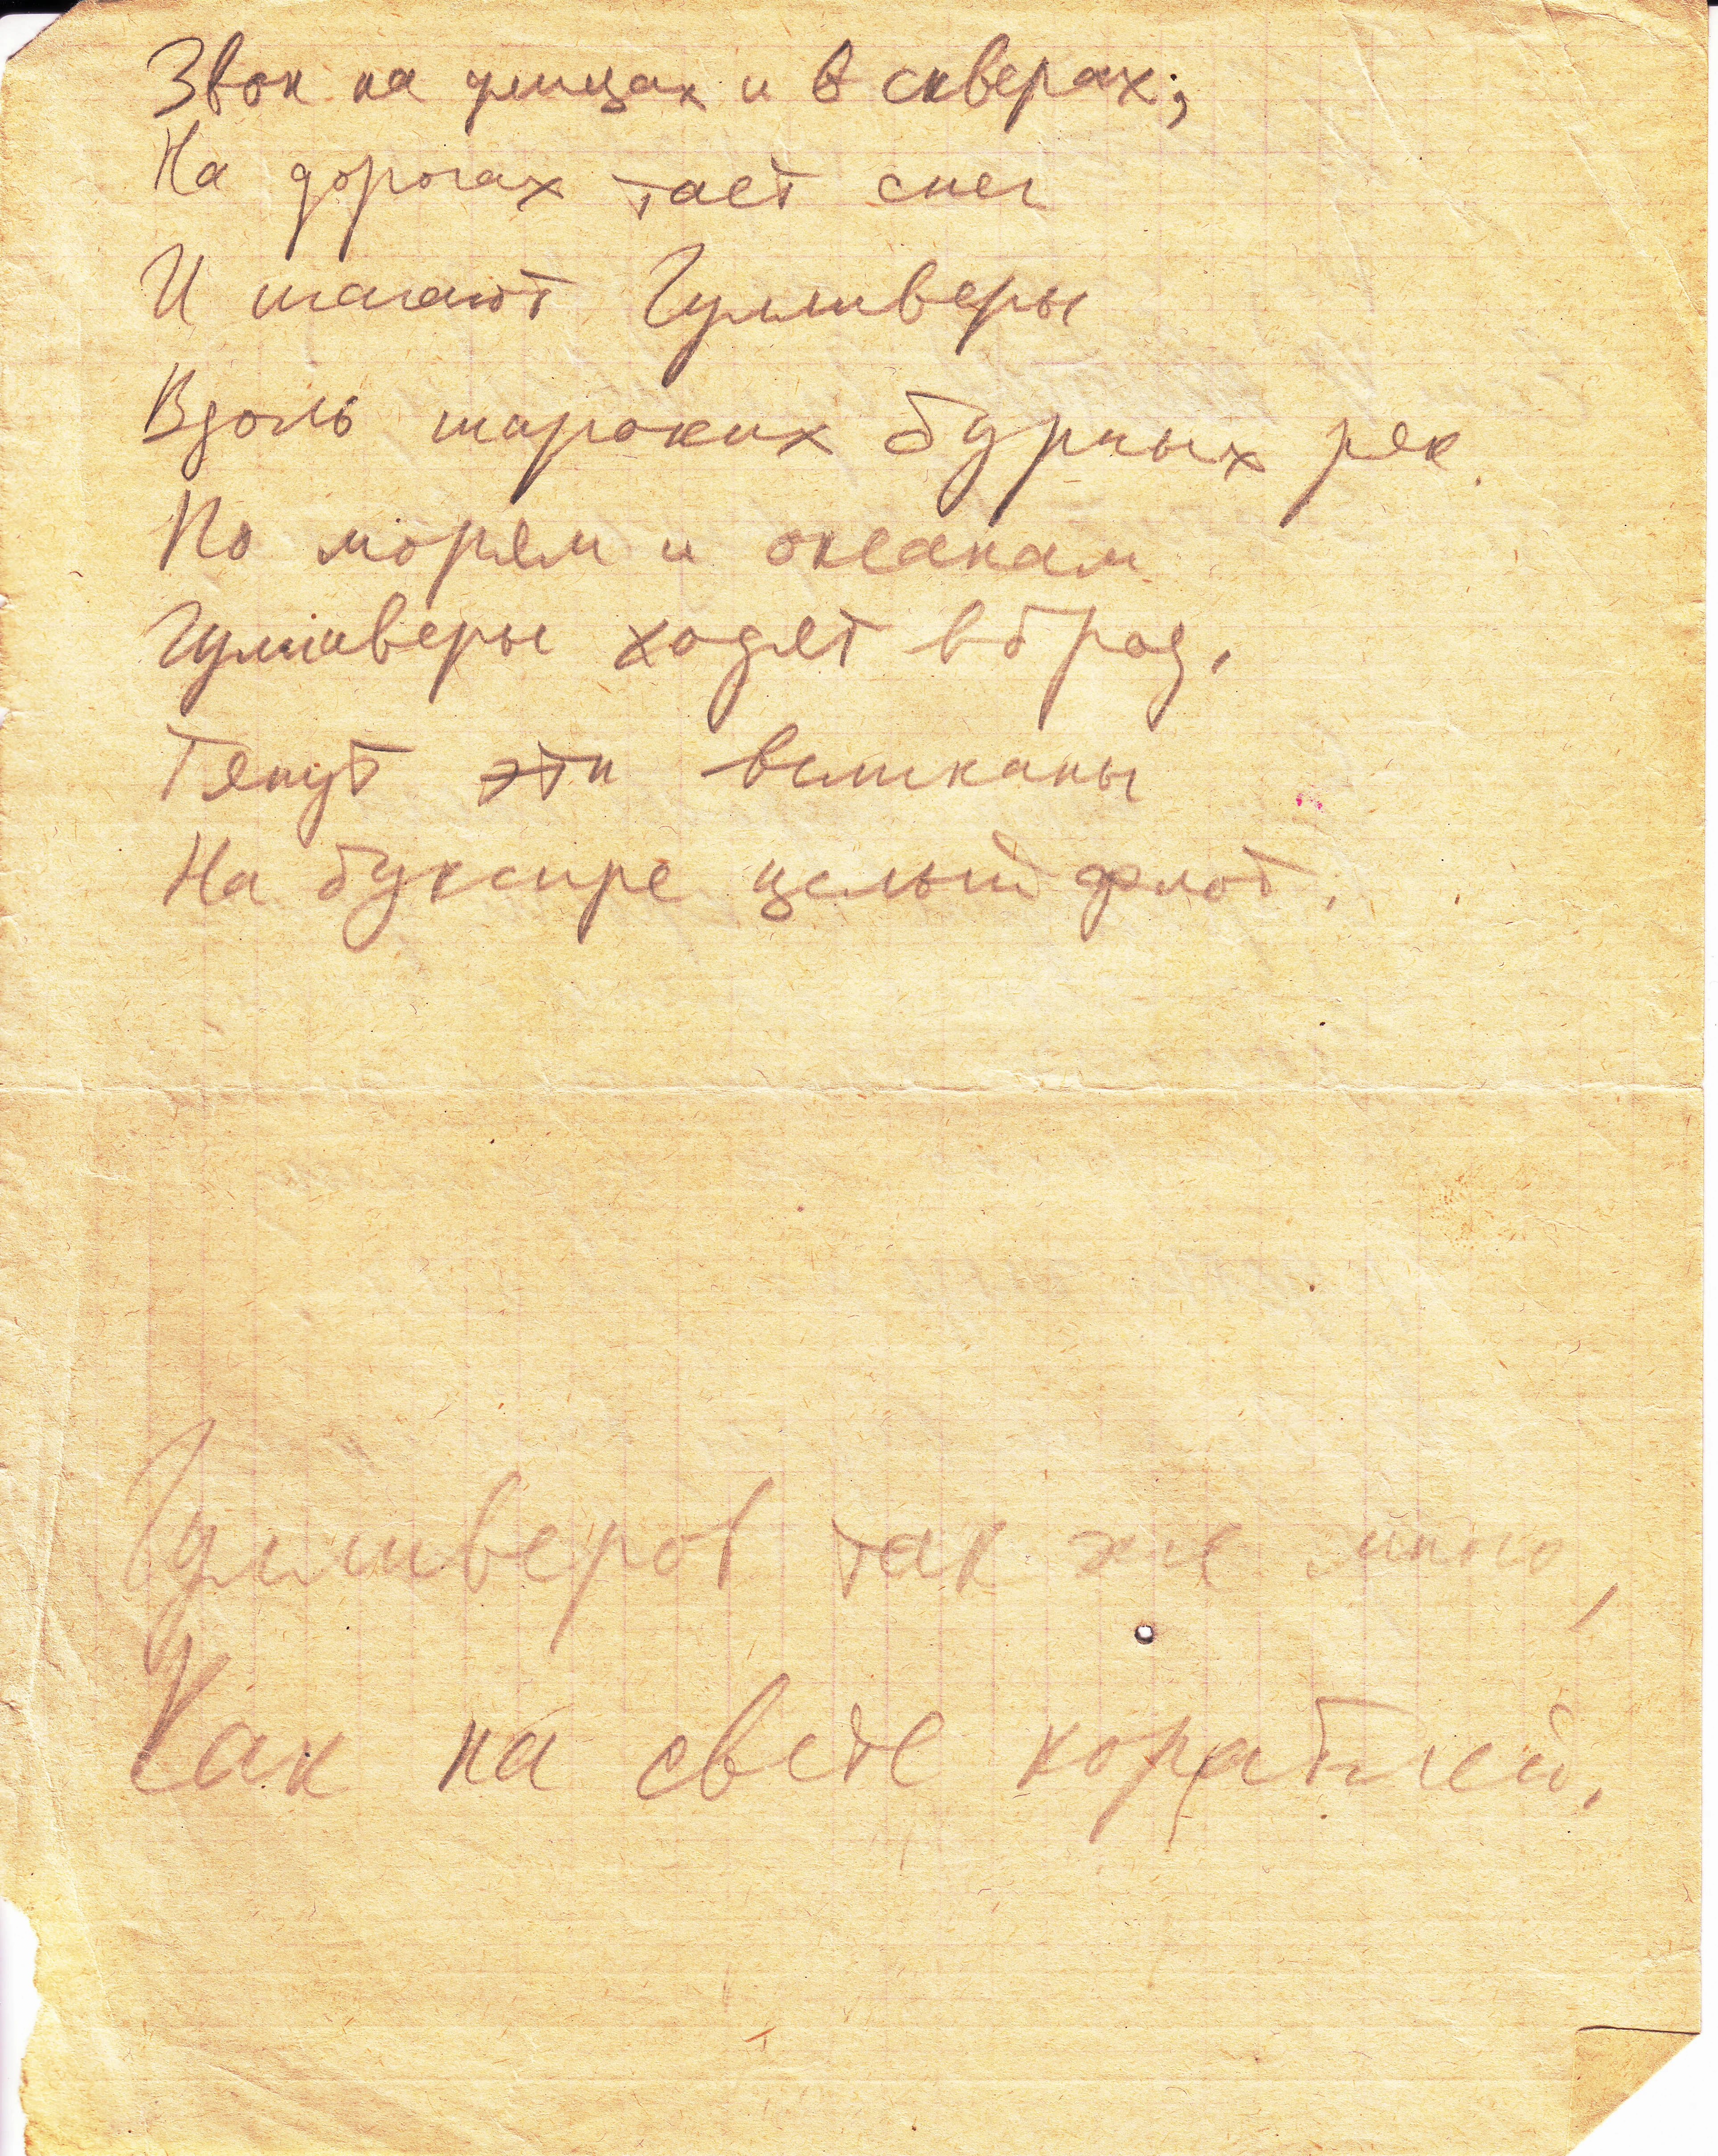 Звон на улицах и в скверах;
На дорогах тает снег
И шагают Гулливеры
Вдоль широких бурных рек.
По морям и океанам
Гуливеры ходят вброд,
Тянут эти великаны
На буксире целый флот.
Гулливеров так же много,
Как на свете кораблей.